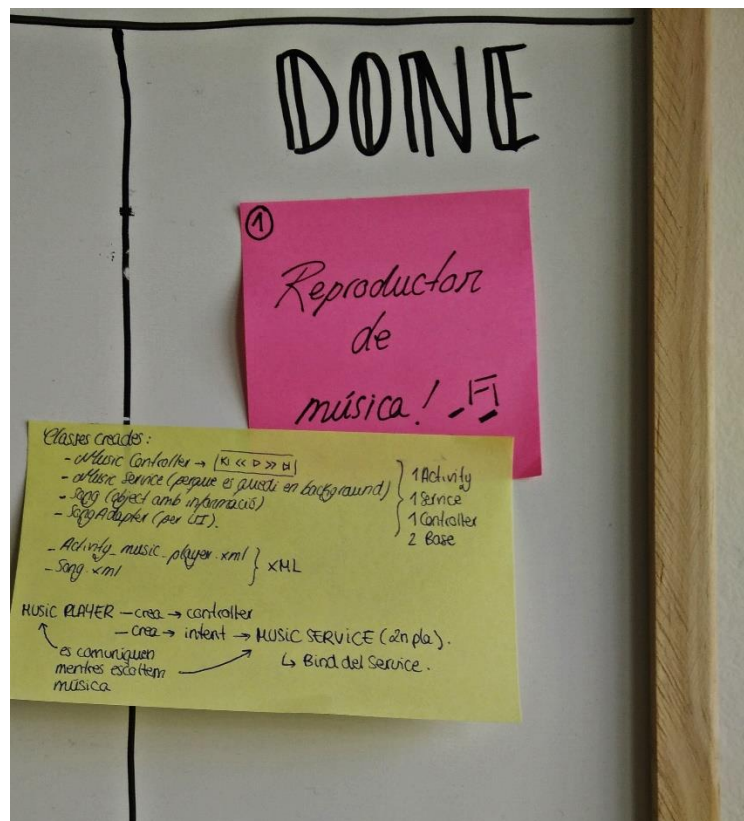 DONE
1
Reproductor
de
música!
Classes creades:
- Music Controller → |◁ << ▷ >> ▷|
- Music Service (perque es quedi en background)
- Song (object amb informació)
- SongAdapter (per UI).
} 1 Activity
1 Service
1 Controller
2 Base
- Activity_music_player.xml
- Song.xml
} XML
MUSIC PLAYER — crea → controller
— crea → intent → MUSIC SERVICE (2n pla).
↳ Bind del Service.
es comuniquen
mentres escoltem
música